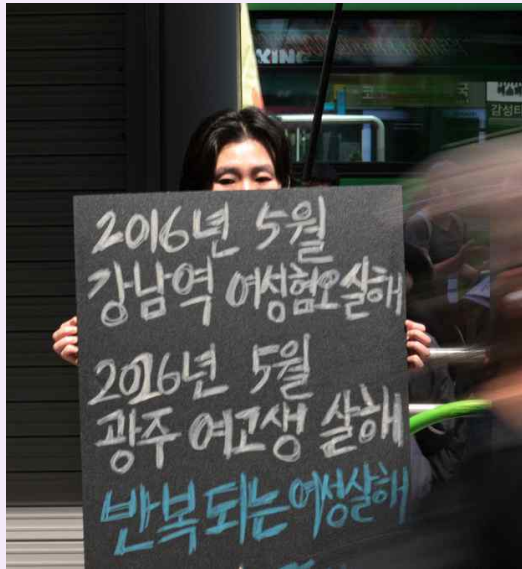 KING
국
감성타
2016년 5월
강남역 여성혐오살해
2026년 5월
광주 여고생 살해
반복되는 여성살해